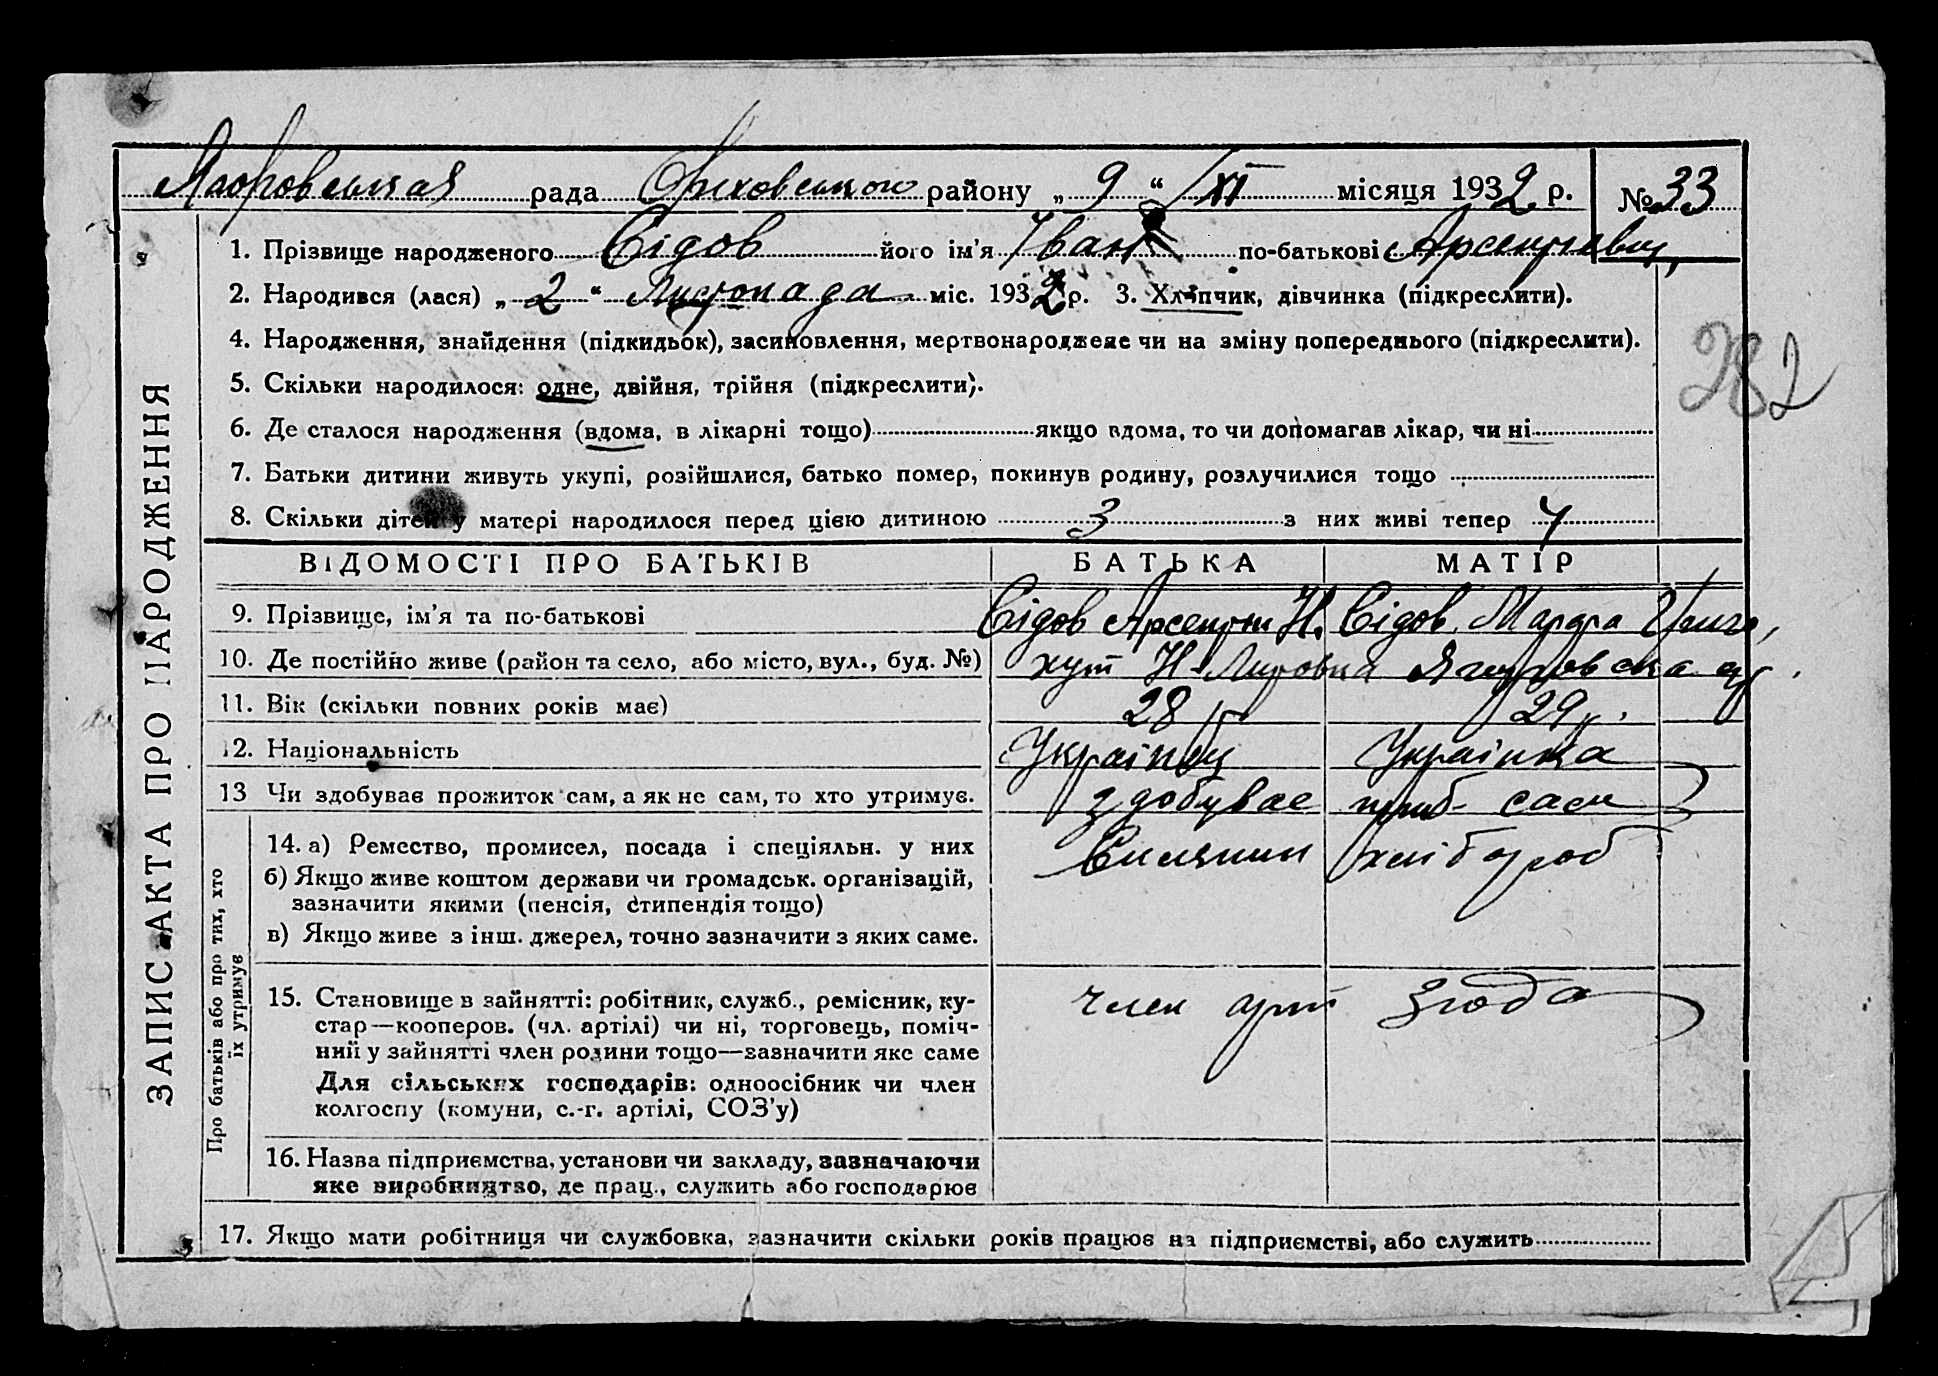 рада Оріховського району „ 9 “ XI місяця 1932 р. № 33
1. Прізвище народженого Сідов його ім'я Іван по-батькові Арсентиевич
2. Народився (лася) „ 2 “ Листопада міс. 1932 р. 3. Хлопчик, дівчинка (підкреслити).
4. Народження, знайдення (підкидьок), засиновлення, мертвонароджене чи на зміну попереднього (підкреслити).
5. Скільки народилося: одне, двійня, трійня (підкреслити).
6. Де сталося народження (вдома, в лікарні тощо) якщо вдома, то чи допомагав лікар, чи ні
282
7. Батьки дитини живуть укупі, розійшлися, батько помер, покинув родину, розлучилися тощо
8. Скільки дітей у матері народилося перед цією дитиною 3 з них живі тепер 4
ЗАПИС АКТА ПРО НАРОДЖЕННЯ
ВІДОМОСТІ ПРО БАТЬКІВ БАТЬКА МАТІР
9. Прізвище, ім'я та по-батькові Сідов Арсентий Н. Сідов Марфа Григо,
10. Де постійно живе (район та село, або місто, вул., буд. №) хут Н-
11. Вік (скільки повних років має) 28 р. 29 р.
12. Національність Українец Українка
13 Чи здобуває прожиток сам, а як не сам, то хто утримує. здобувае приб- сам
Про батьків або про тих, хто
їх утримує
14. а) Ремество, промисел, посада і спеціяльн. у них Силянин хлібороб
б) Якщо живе коштом держави чи громадськ. організацій,
зазначити якими (пенсія, стипендія тощо)
в) Якщо живе з інш. джерел, точно зазначити з яких саме.
15. Становище в зайнятті: робітник, служб., ремісник, ку-
стар—кооперов. (чл. артілі) чи ні, торговець, поміч-
ний у зайнятті член родини тощо—зазначити яке саме
член арт Згода
Для сільських господарів: одноосібник чи член
колгоспу (комуни, с.-г. артілі, СОЗ'у)
16. Назва підприємства, установи чи закладу, зазначаючи
яке виробництво, де прац., служить або господарює
17. Якщо мати робітниця чи службовка, зазначити скільки років працює на підприємстві, або служить